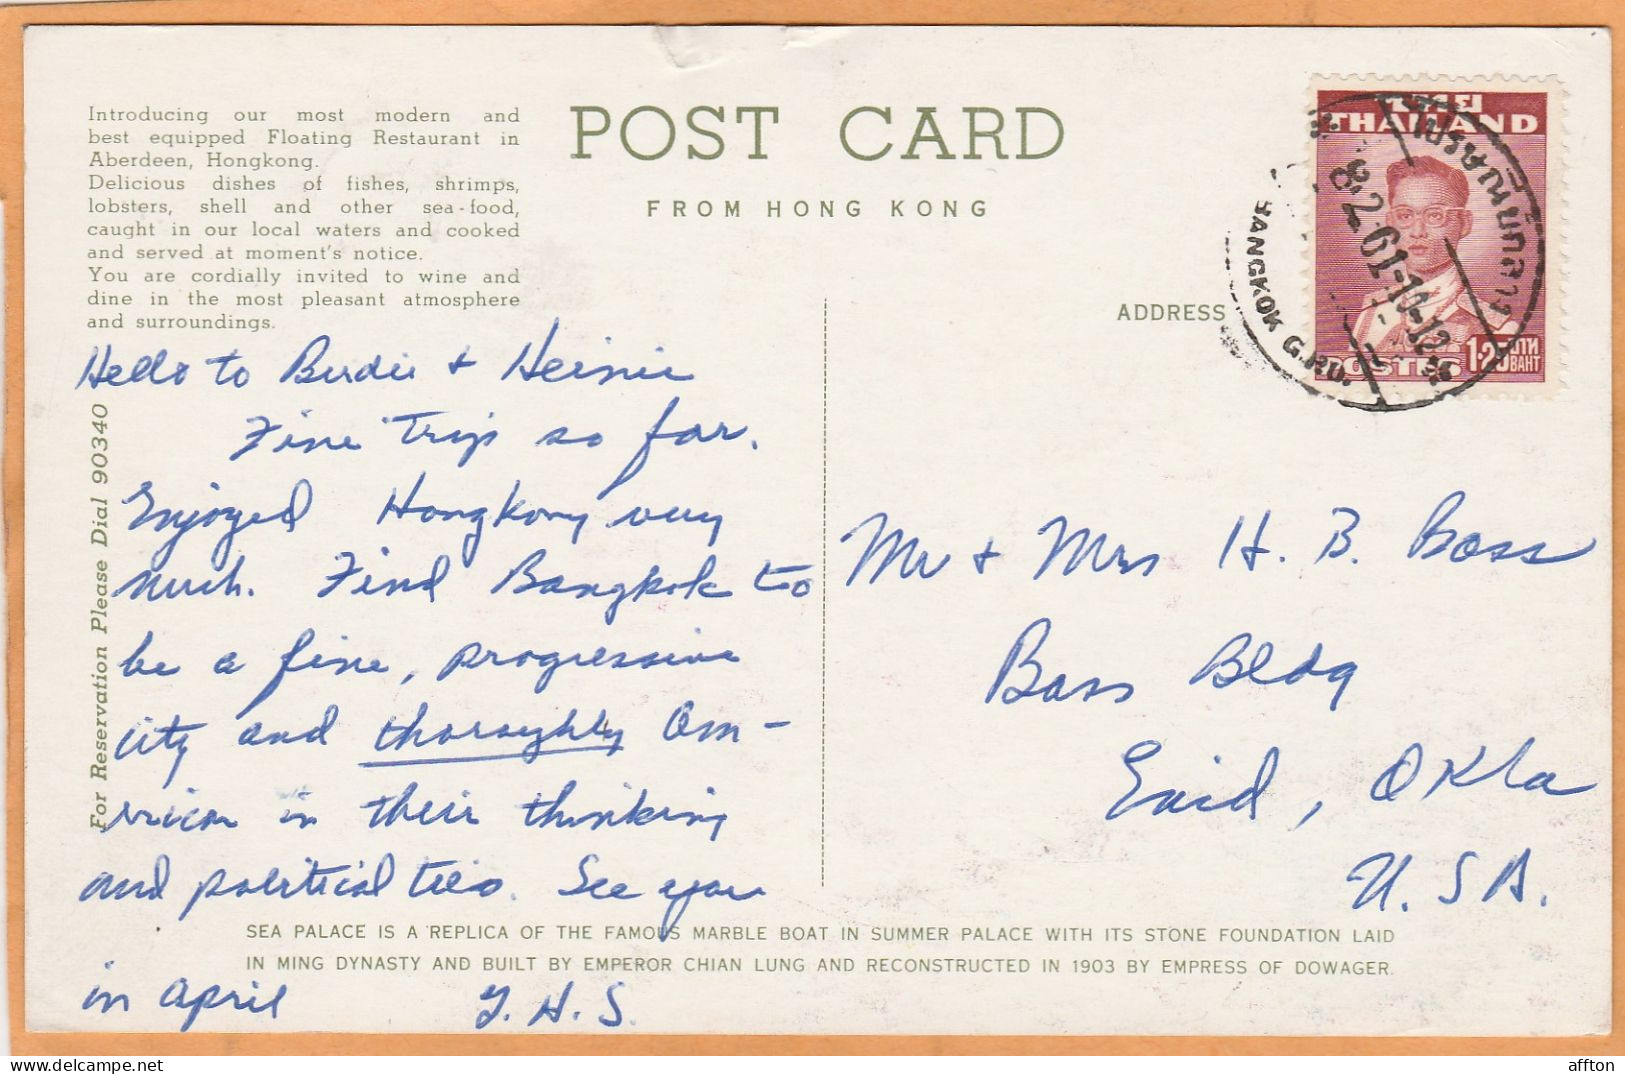 Introducing our most modern and
best equipped Floating Restaurant in
Aberdeen, Hongkong.
Delicious dishes of fishes, shrimps,
lobsters, shell and other sea-food,
caught in our local waters and cooked
and served at moment's notice.
You are cordially invited to wine and
dine in the most pleasant atmosphere
and surroundings.
For Reservation Please Dial 90340
POST CARD
FROM HONG KONG
ADDRESS
ไทย
THAILAND
POSTES 1·25 บาท BAHT
ไปรษณีย์กลาง
8·2·61-10-12
BANGKOK G.P.O.
Hello to Birdie + Heinie
Fine trip so far.
Enjoyed Hongkong very
much. Find Bangkok to
be a fine, progressive
city and thoroughly Am-
erican in their thinking
and political ties. See you
in April
Y. H. S.
Mr + Mrs H. B. Bass
Bass Bldg
Enid, Okla
U.S.A.
SEA PALACE IS A REPLICA OF THE FAMOUS MARBLE BOAT IN SUMMER PALACE WITH ITS STONE FOUNDATION LAID
IN MING DYNASTY AND BUILT BY EMPEROR CHIAN LUNG AND RECONSTRUCTED IN 1903 BY EMPRESS OF DOWAGER.
delcampe.net
affton